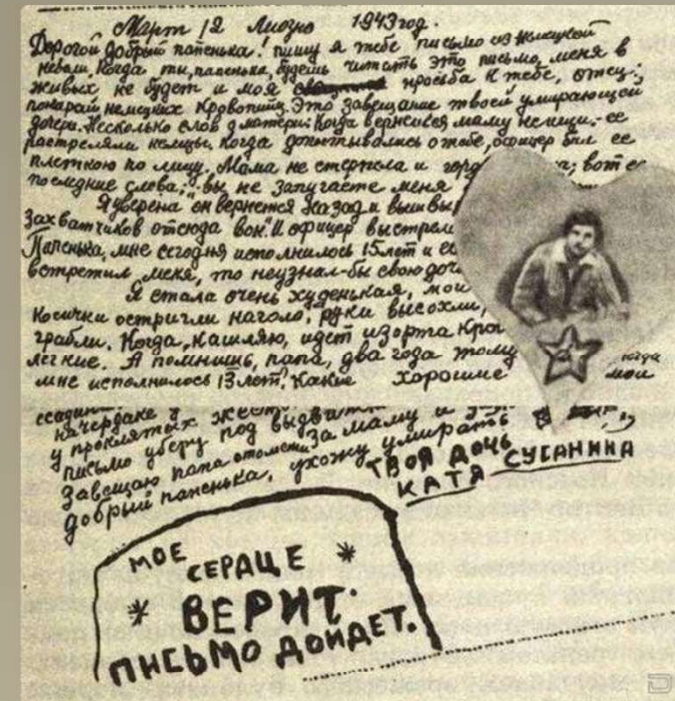 Март 12 Лиозно 1943 год.
Дорогой добрый папенька! пишу я тебе письмо из немецкой
неволи. Когда ты, папенька, будешь читать это письмо, меня в
живых не будет и моя просьба к тебе, отец:
покарай немецких кровопийц. Это завещание твоей умирающей
дочери. Несколько слов о матери. Когда вернешься маму не ищи.- ее
растреляли немцы, когда допытывались о тебе, офицер бил ее
плеткою по лицу. Мама не стерпела и вот ее
последние слова; "вы не запугаете меня
Я уверена он вернется назад и
захватчиков отсюда вон". И офицер
Папенька, мне сегодня исполнилось 15 лет и
встретил меня, то неузнал-бы свою
Я стала очень худенькая, мои
косички остригли наголо, руки высохли,
грабли. Когда, кашляю, идет изо рта
легкие. А помнишь, папа, два года тому
мне исполнилось 13 лет? Какие хорошие мои
на чердаке
у проклятых
письмо уберу под
Завещаю папа отомсти: за маму и
добрый папенька, ухожу умирать
ТВОЯ ДОЧЬ
КАТЯ СУСАНИНА
МОЕ
СЕРДЦЕ
ВЕРИТ.
ПИСЬМО ДОЙДЕТ.